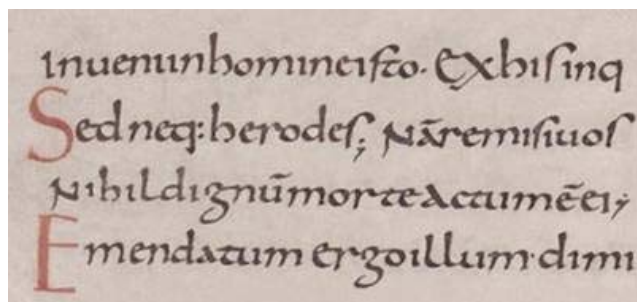 Inueni in homine isto. Ex his in q
Sed neq: herodes; Nā remisi uos
Nihil dignū morte actum ē ei;
Emendatum ergo illum dimi